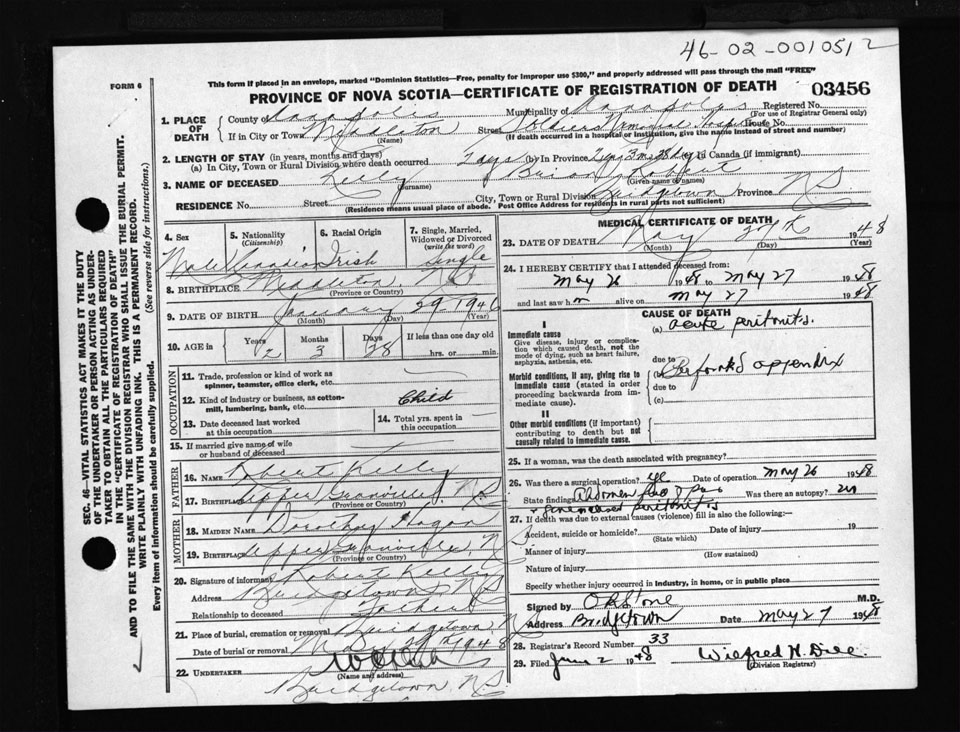 46-02-001051 2
This form if placed in an envelope, marked "Dominion Statistics—Free, penalty for improper use $300," and properly addressed will pass through the mail "FREE"
FORM 6
PROVINCE OF NOVA SCOTIA—CERTIFICATE OF REGISTRATION OF DEATH
03456
SEC. 46—VITAL STATISTICS ACT MAKES IT THE DUTY
OF THE UNDERTAKER OR PERSON ACTING AS UNDER-
TAKER TO OBTAIN ALL THE PARTICULARS REQUIRED
IN THE "CERTIFICATE OF REGISTRATION OF DEATH"
AND TO FILE THE SAME WITH THE DIVISION REGISTRAR WHO SHALL ISSUE THE BURIAL PERMIT.
WRITE PLAINLY WITH UNFADING INK. THIS IS A PERMANENT RECORD.
Every item of information should be carefully supplied. (See reverse side for instructions.)
1. PLACE OF DEATH
County of Annapolis Municipality of Annapolis Registered No.
(For use of Registrar General only)
If in City or Town Middleton Street Soldiers Memorial Hospital House No.
(Name) (If death occurred in a hospital or institution, give the name instead of street and number)
2. LENGTH OF STAY (in years, months and days)
(a) In City, Town or Rural Division where death occurred 2 days (b) In Province 2 yrs 3 ms 28 days (c) In Canada (if immigrant)
3. NAME OF DECEASED Kelly Brian Robert
(Surname) (Given name or names)
RESIDENCE No. Street City, Town or Rural Division Bridgetown Province N S
(Residence means usual place of abode. Post Office Address for residents in rural parts not sufficient)
4. Sex Male
5. Nationality (Citizenship) Canadian
6. Racial Origin Irish
7. Single, Married, Widowed or Divorced (write the word) Single
8. BIRTHPLACE Middleton, N.S
(Province or Country)
9. DATE OF BIRTH January 29 1946
(Month) (Day) (Year)
10. AGE in Years 2 Months 3 Days 28 If less than one day old hrs. or min.
OCCUPATION
11. Trade, profession or kind of work as spinner, teamster, office clerk, etc.
12. Kind of industry or business, as cotton-mill, lumbering, bank, etc. Child
13. Date deceased last worked at this occupation
14. Total yrs. spent in this occupation
15. If married give name of wife or husband of deceased
FATHER
16. Name Robert Kelly
17. Birthplace Upper Granville, N.S.
MOTHER
18. Maiden Name Dorothy Hogan
19. Birthplace Upper Granville, N S
(Province or Country)
20. Signature of informant Robert Kelly
Address Bridgetown N S
Relationship to deceased Father
21. Place of burial, cremation or removal Bridgetown N S
Date of burial or removal May 29th 1948
22. UNDERTAKER
(Name and address)
Bridgetown N.S.
MEDICAL CERTIFICATE OF DEATH
23. DATE OF DEATH May 27th 1948
(Month) (Day) (Year)
24. I HEREBY CERTIFY that I attended deceased from:
May 26 1948 to May 27 1948
and last saw h m alive on May 27 1948
CAUSE OF DEATH
I
Immediate cause
Give disease, injury or complication which caused death, not the mode of dying, such as heart failure, asphyxia, asthenia, etc.
(a) acute peritonitis.
due to
Morbid conditions, if any, giving rise to immediate cause (stated in order proceeding backwards from immediate cause).
(b) Perforated appendix
due to
(c)
II
Other morbid conditions (if important) contributing to death but not causally related to immediate cause.
25. If a woman, was the death associated with pregnancy?
26. Was there a surgical operation? Date of operation May 26 1948
State findings Abdomen Was there an autopsy? no
peritonitis
27. If death was due to external causes (violence) fill in also the following:—
Accident, suicide or homicide? Date of injury 19
(State which)
Manner of injury
(How sustained)
Nature of injury
Specify whether injury occurred in industry, in home, or in public place
Signed by M.D.
Address Bridgetown Date May 27 1948
28. Registrar's Record Number 33
29. Filed June 2 1948 Wilfred H.
(Division Registrar)